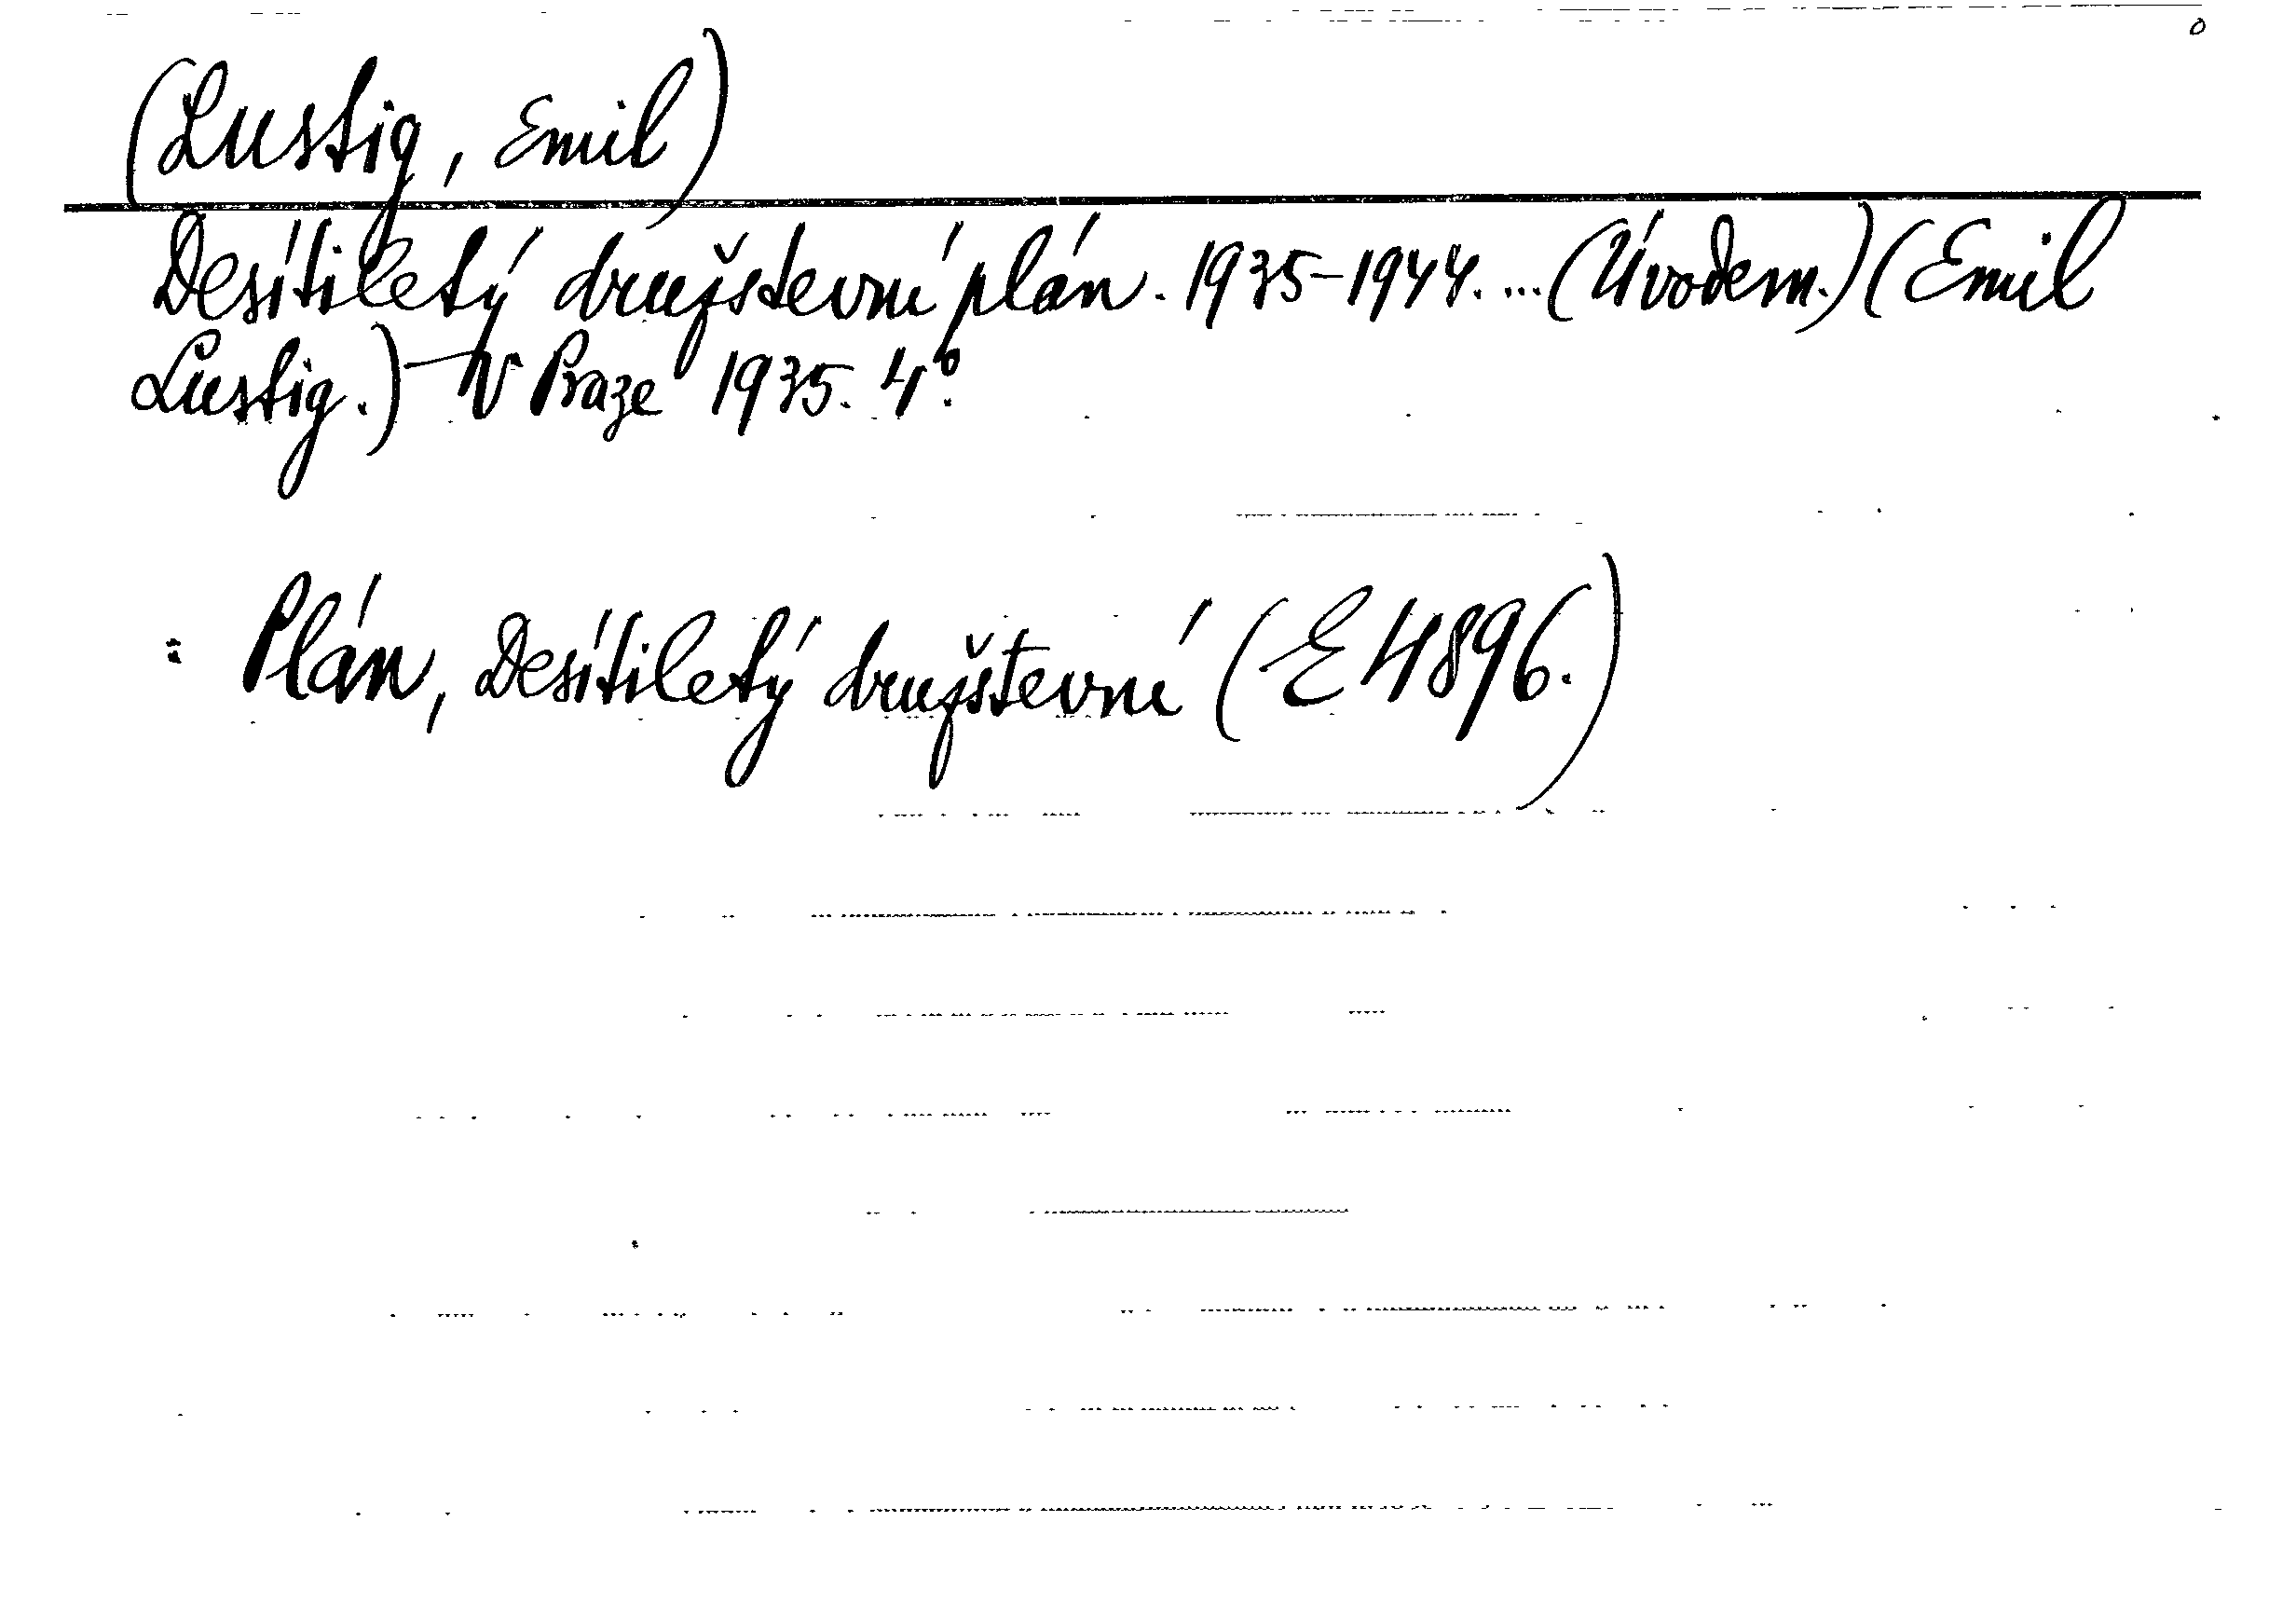 (Lustig, Emil)
Desítiletý družstevní plán. 1935-1944. ... (Úvodem.) (Emil
Lustig.) – V Praze 1935. 4°.
: Plán, Desítiletý družstevní (E 4896.)